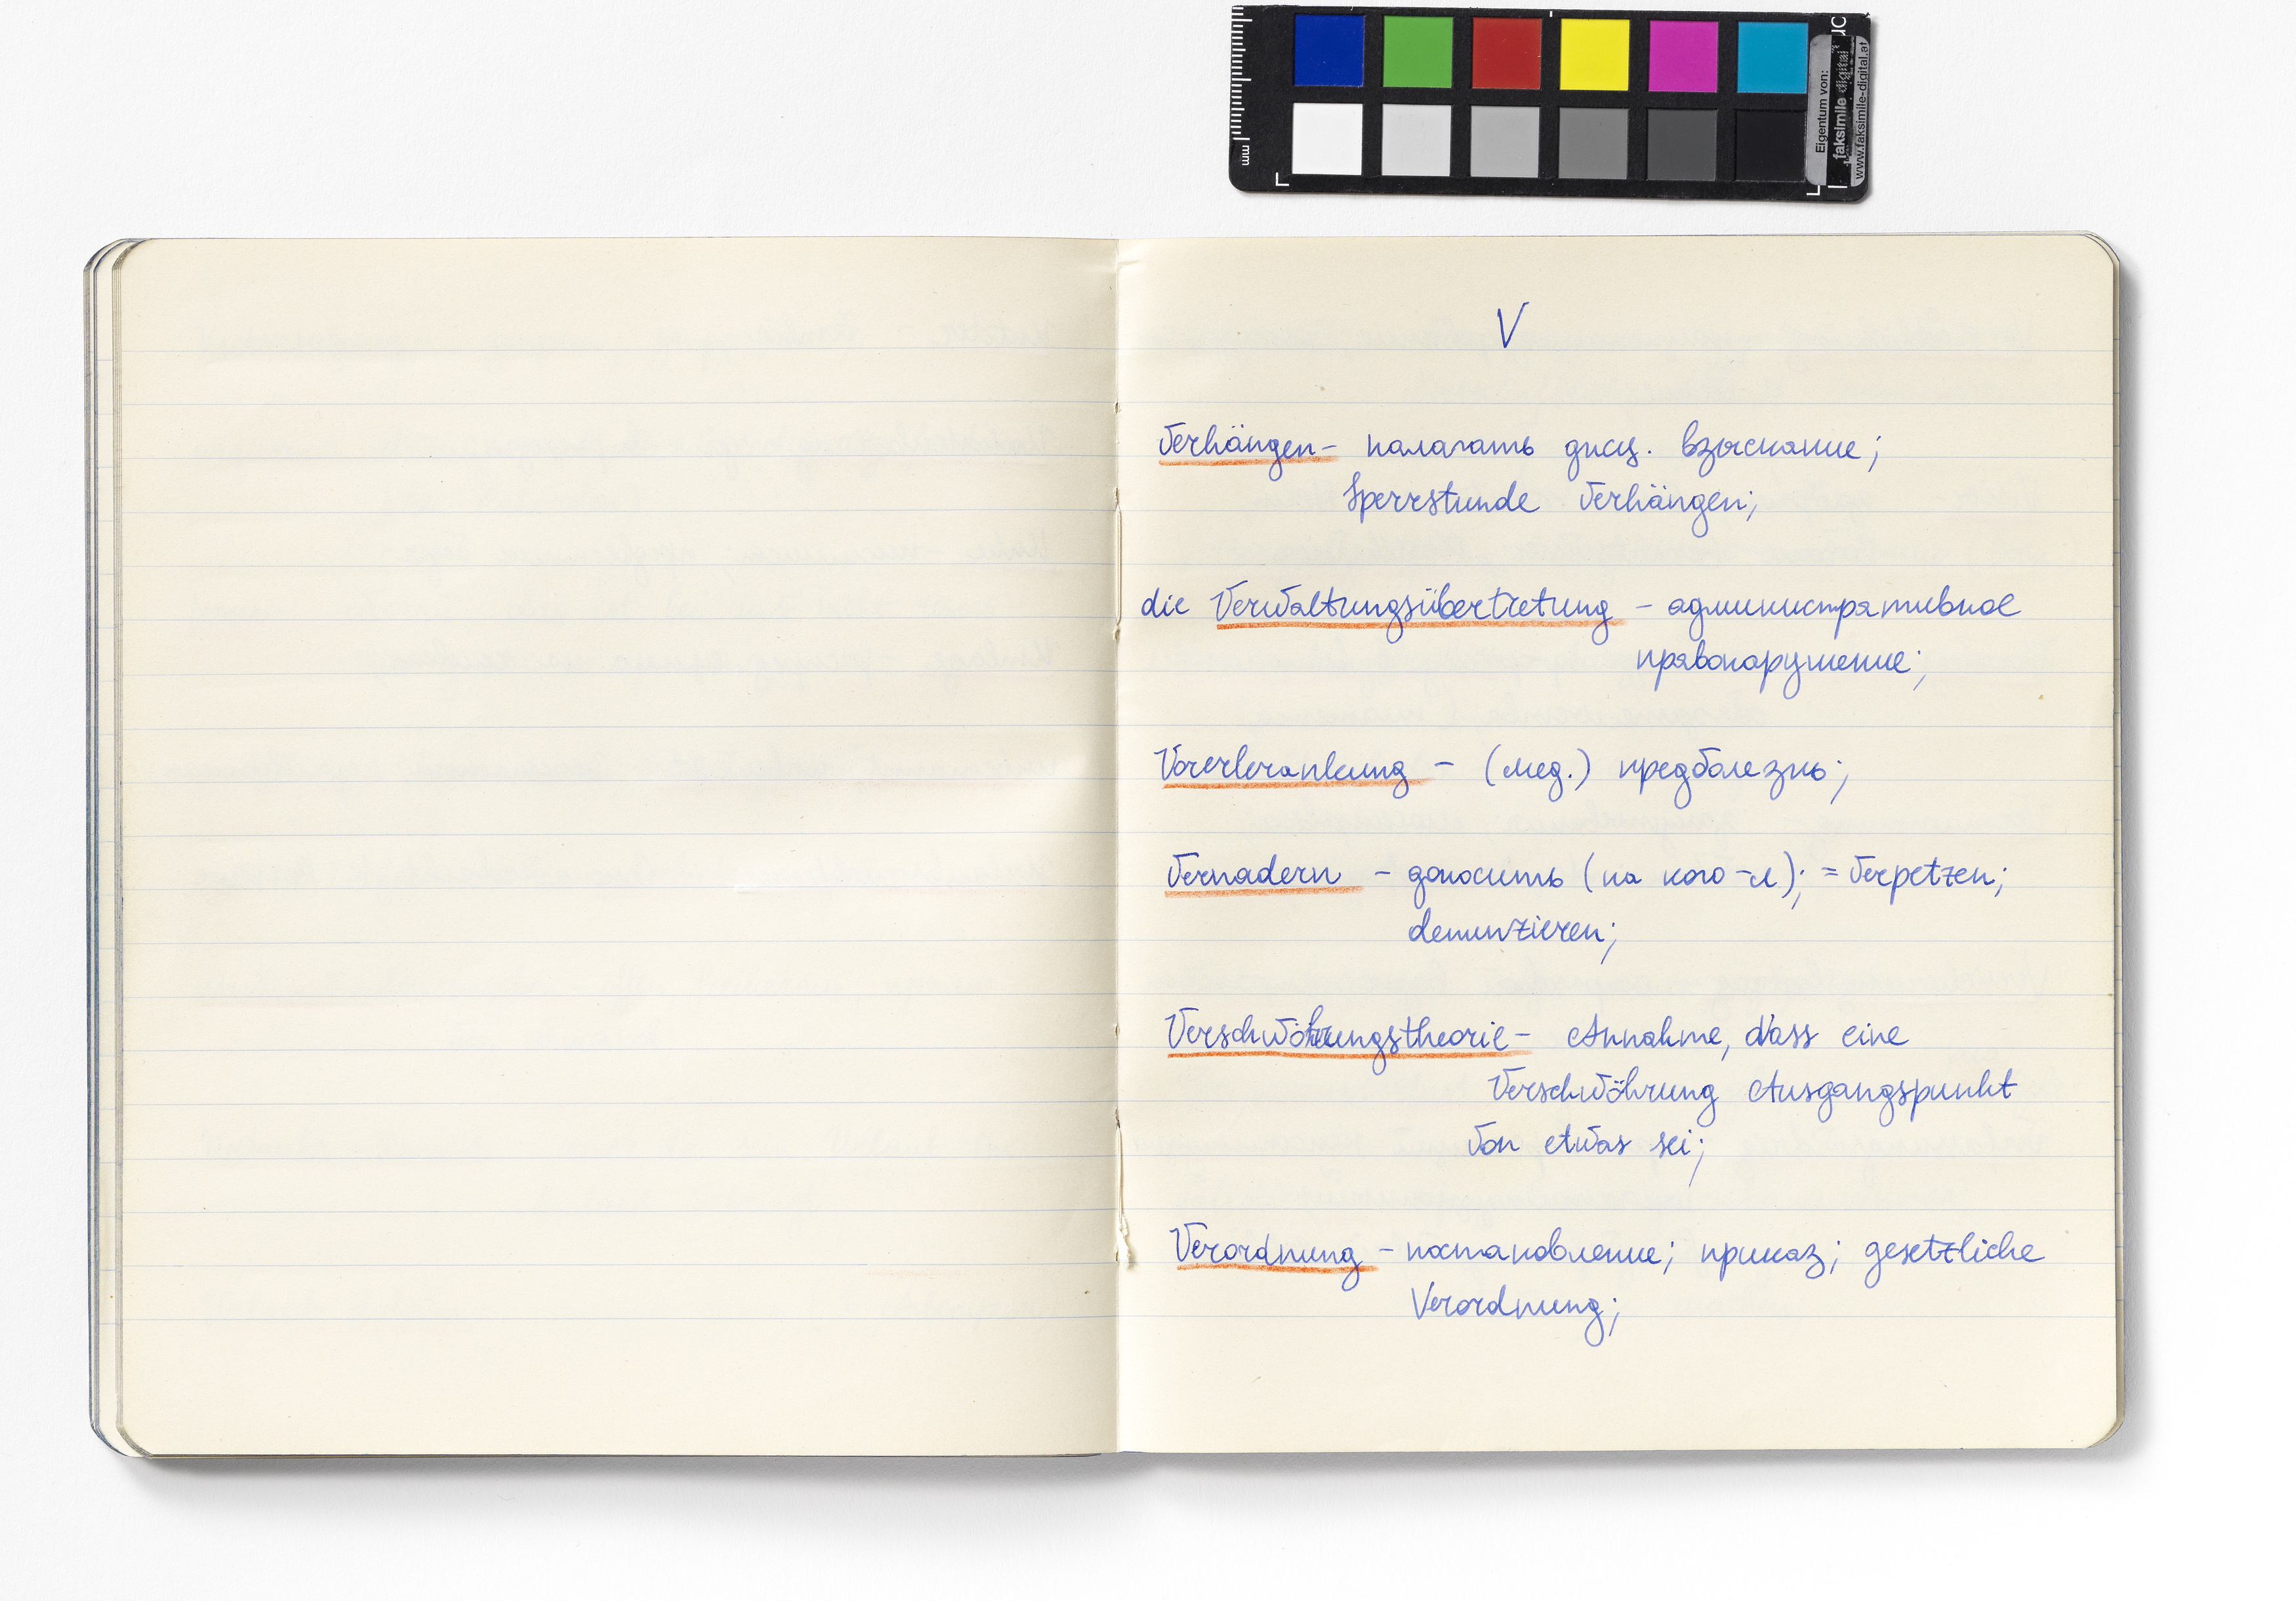 mm
Eigentum von:
faksimile digital
www.faksimile-digital.at
V
Verhängen – налагать дисц. взыскание;
Sperrstunde verhängen;
die Verwaltungsübertretung – административное
правонарушение;
Vorerkrankung – (мед.) предболезнь;
Vernadern – доносить (на кого-л); = verpetzen;
denunzieren;
Verschwörungstheorie – Annahme, dass eine
Verschwöhrung Ausgangspunkt
von etwas sei;
Verordnung – постановление; приказ; gesetzliche
Verordnung;